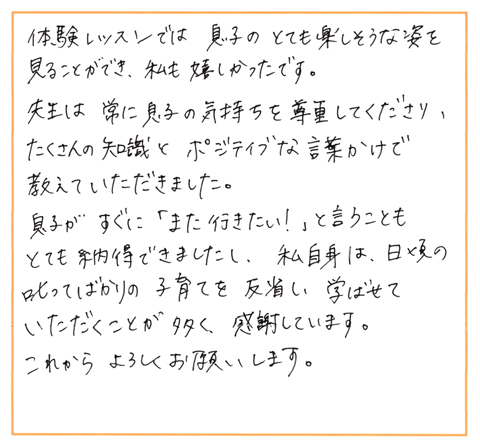 体験レッスンでは 息子の とても楽しそうな姿を
見ることができ、私も嬉しかったです。
先生は 常に息子の気持ちを尊重してくださり、
たくさんの知識と ポジティブな言葉かけで
教えていただきました。
息子が すぐに「また行きたい!」と言うことも
とても納得できましたし、 私自身は、日頃の
叱ってばかりの 子育てを 反省し 学ばせて
いただくことが多く、感謝しています。
これから よろしくお願いします。